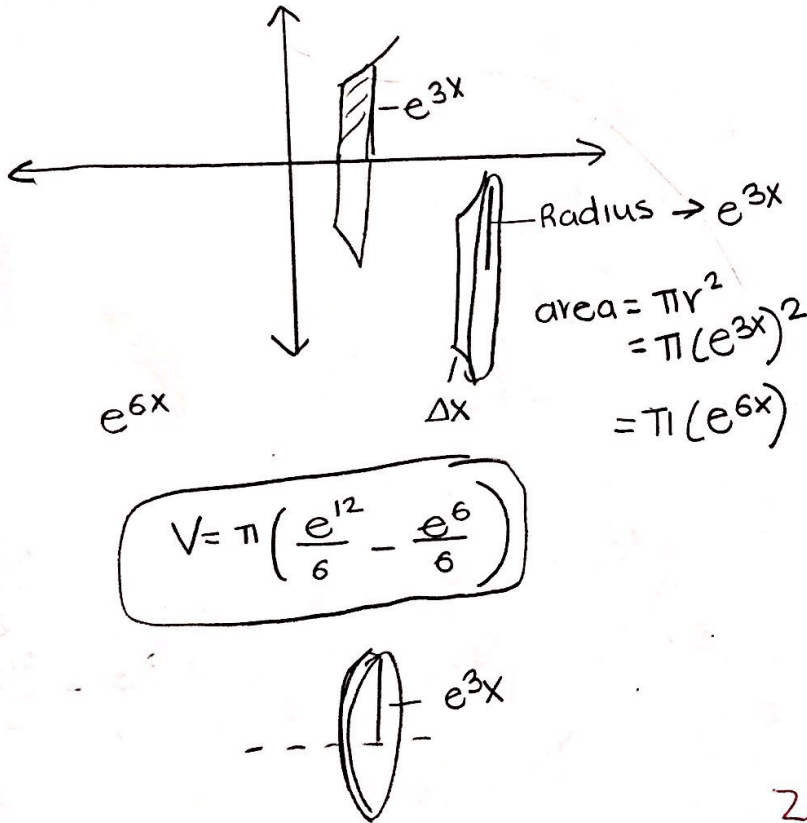 e³ˣ
Radius → e³ˣ
area = πr²
= π(e³ˣ)²
e⁶ˣ
Δx
= π(e⁶ˣ)
V = π(e¹²/6 - e⁶/6)
e³x
2